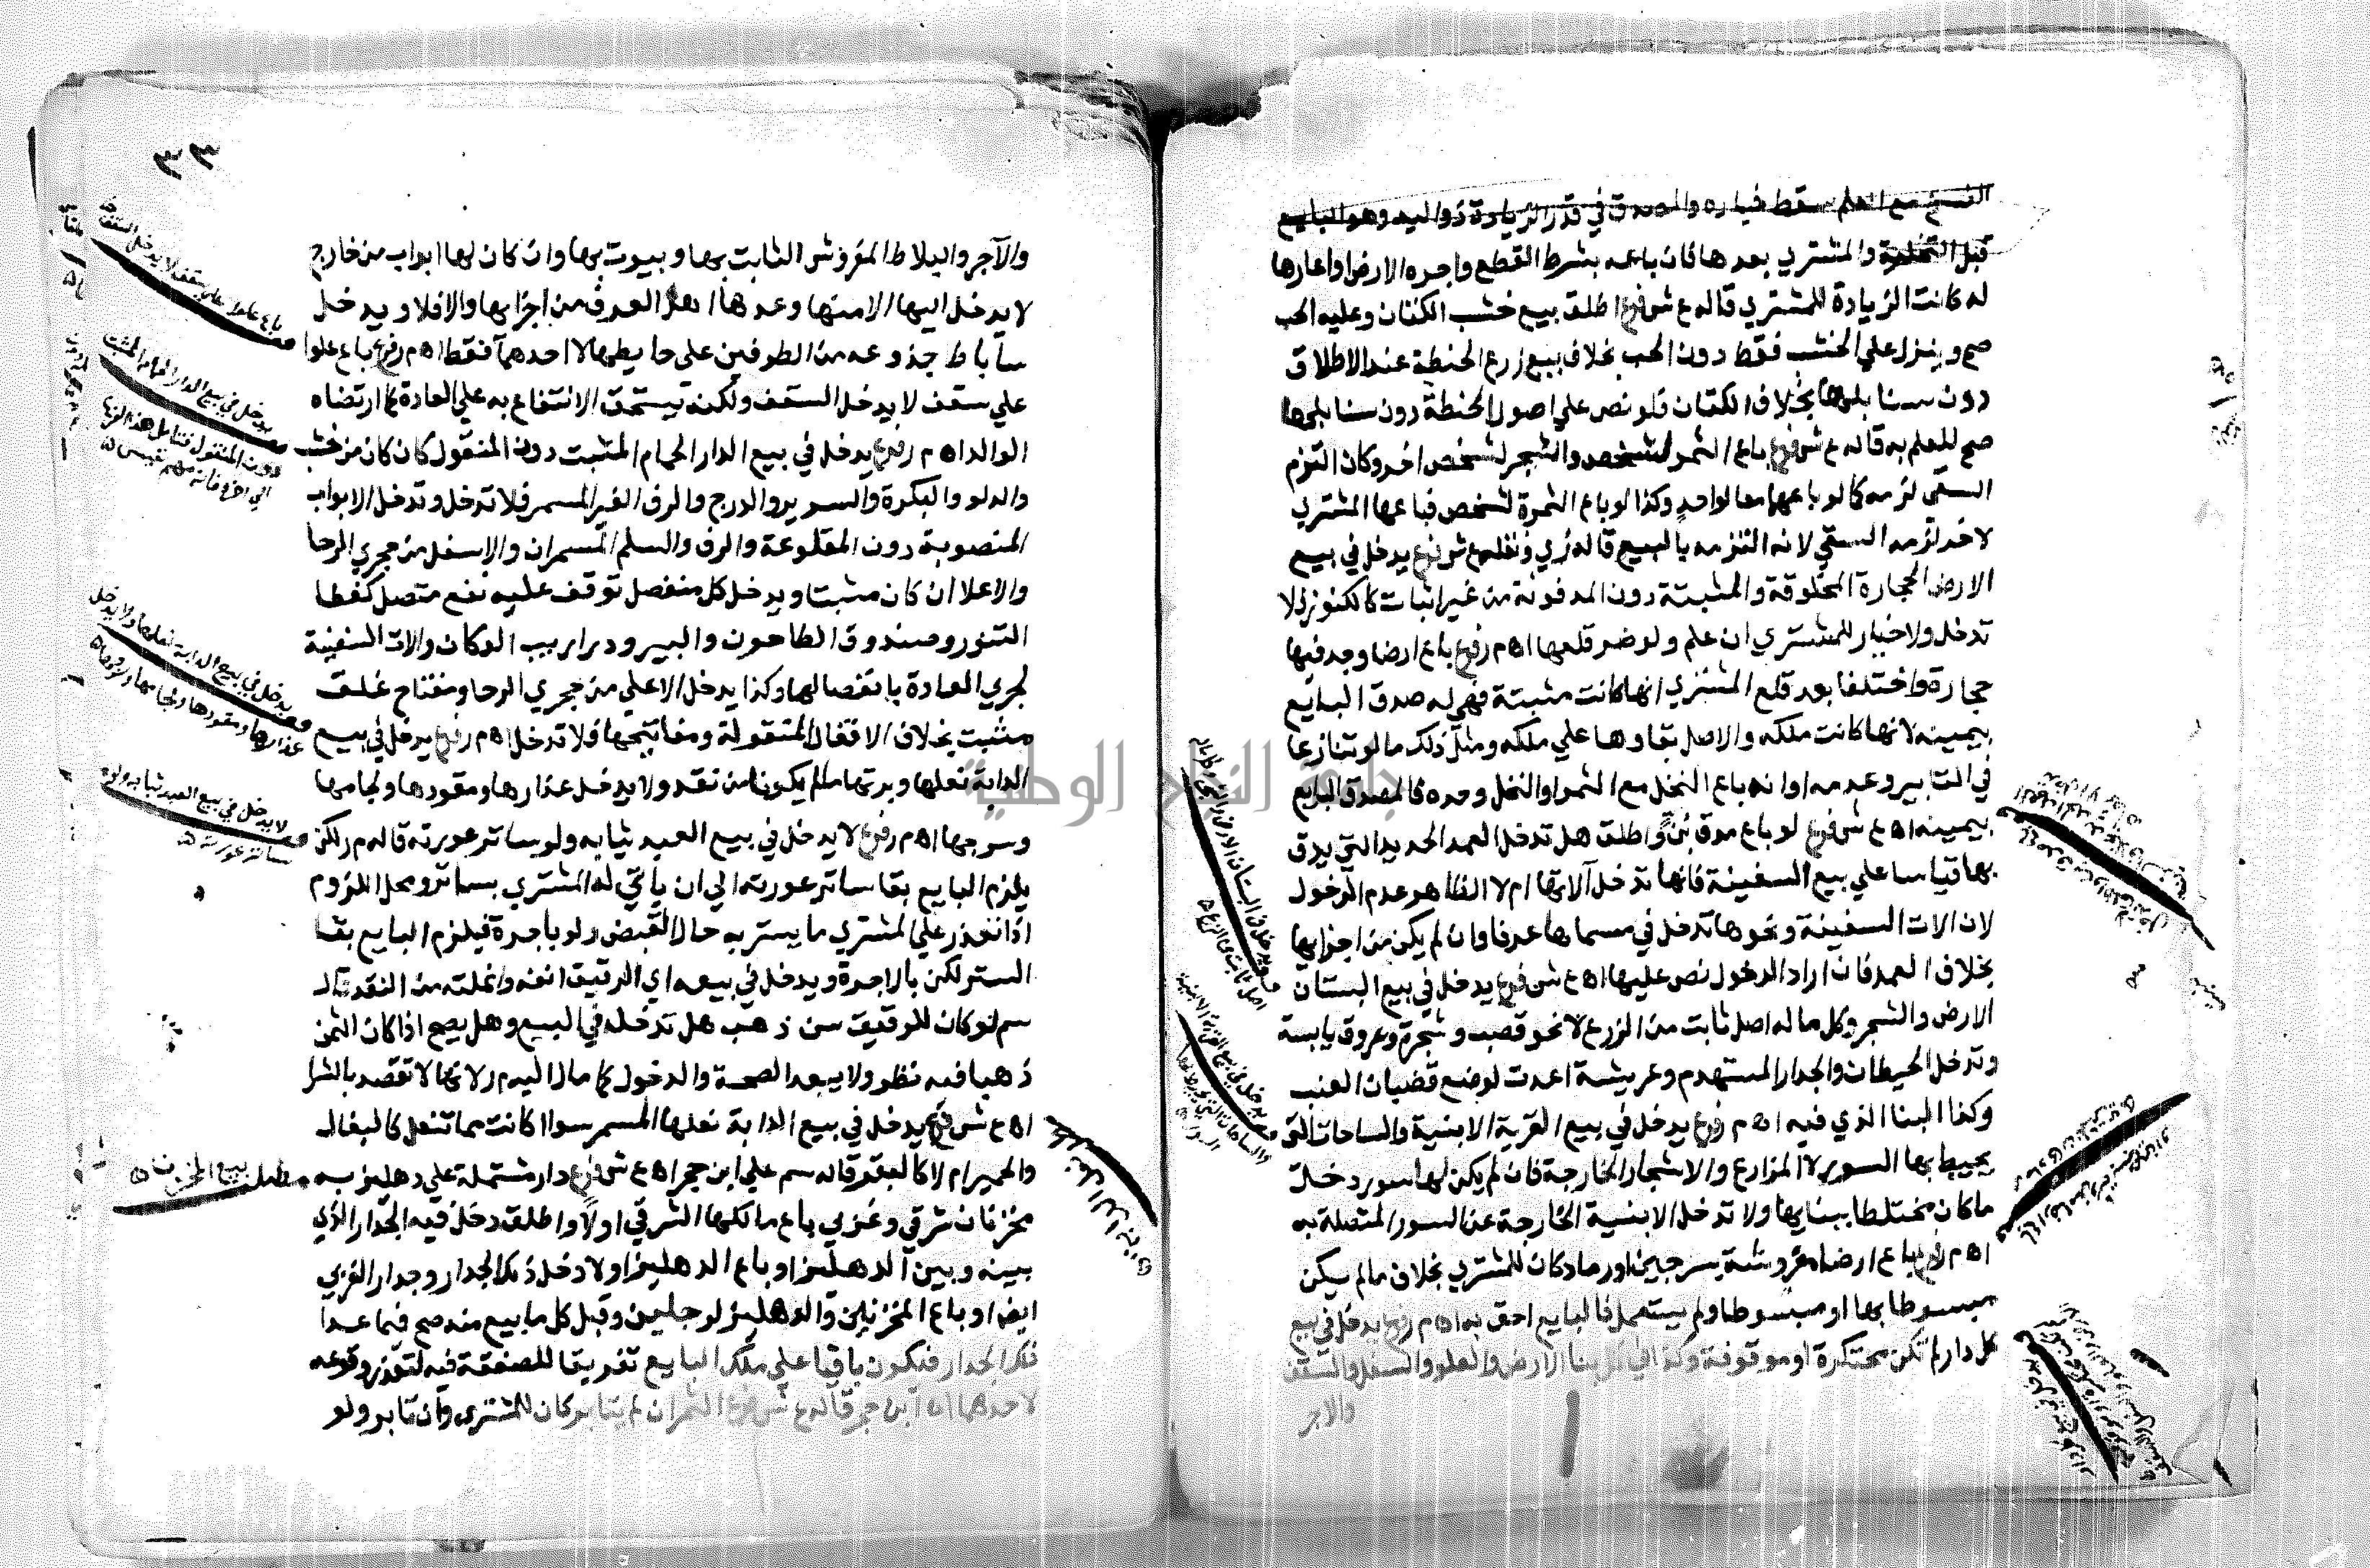 الفسخ مع العلم سقط خياره والمصدق في قدر الزيادة ذو اليد وهو البايع
قبل التخلية والمشتري بعدها فان باعه بشرط القطع واجره الارض او اعارها
له كانت الزيادة للمشتري قاله ع ش فرع اطلق بيع خشب الكتان وعليه الحب
صح وينزل علي الخشب فقط دون الحب بخلاف بيع زرع الحنطة عند الاطلاق
دون سنابلها بخلاف الكتان فلو نص علي اصول الحنطة دون سنابلها
صح للعلم به قاله ع ش فرع باع الثمر لشخص والشجر لشخص اخر وكان التزم
السقي لزمه كما لو باعهما معا لواحد وكذا لو باع الثمرة لشخص فباعها المشتري
لاخر لزمه السقي لانه التزمه بالبيع قاله زي ونقله ع ش فرع يدخل في بيع
الارض الحجارة المخلوقة والمثبتة دون المدفونة من غير اثبات كالكنوز فلا
تدخل ولا خيار للمشتري ان علم ولو ضر قلعها اه م ر فرع باع ارضا وجد فيها
حجارة واختلفا بعد قلع المشتري انها كانت مثبتة فهي له صدق البايع
بيمينه لانها كانت ملكه والاصل بقاوها علي ملكه ومثل ذلك ما لو تنازعا
في التابير وعدمه او انه باع النخل مع الثمر او النخل وحده فالمصدق البايع
بيمينه اه ع ش فرع لو باع مدق بن واطلق هل تدخل العمد الحديد التي يدق
بها قياسا علي بيع السفينة فانها تدخل آلاتها ام لا الظاهر عدم الدخول
لان الات السفينة ونحوها تدخل في مسماها عرفا وان لم يكن من اجزايها
بخلاف العمد فان اراد الدخول نص عليها اه ع ش فرع يدخل في بيع البستان
الارض والشجر وكل ما له اصل ثابت من الزرع لا نحو قصب وشجرة وعروق يابسة
وتدخل الحيطان والجدار المستهدم وعريشة اعدت لوضع قضبان العنب
وكذا البنا الذي فيه اه م ر فرع يدخل في بيع القرية الابنية والساحات التي
يحيط بها السور لا المزارع والاشجار الخارجة فان لم يكن لها سور دخل
ما كان مختلطا ببنايها ولا تدخل الابنية الخارجة عن السور المتصلة به
اه م ر فرع باع ارضا مفروشة بسرجين او رماد كان للمشتري بخلاف ما لم يكن
مبسوطا بها او مبسوطا ولم يستعمل فالبايع احق به اه م ر فرع يدخل في بيع
كل دار لم تكن محتكرة او موقوفة وكذا في كل بنا الارض والعلو والسفل والسقف
والاجر
٣٣
والآجر والبلاط المفروش الثابت بها وبيوت بها وان كان لها ابواب من خارج
لا يدخل اليها الا منها وعدها اهل العرف من اجزايها والا فلا ويدخل
ساباط جذوعه من الطرفين علي حايطها لا احدهما فقط اه م ر فرع باع علوا
علي سقف لا يدخل السقف ولكنه يستحق الانتفاع به علي العادة كما ارتضاه
الوالد اه م ر فرع يدخل في بيع الدار الحمام المثبت دون المنقول كان كان من خشب
والدلو والبكرة والسرير والدرج والرف الغير المسمر فلا تدخل وتدخل الابواب
المنصوبة دون المقلوعة والرف والسلم المسمران والاسفل من حجري الرحا
والاعلا ان كان مثبتا ويدخل كل منفصل توقف عليه نفع متصل كغطا
التنور وصندوق الطاحون والبير ودراريب الدكان والات السفينة
لجري العادة بانفصالها وكذا يدخل الاعلي من حجري الرحا ومفتاح غلق
مثبت بخلاف الاقفال المنقولة ومفاتيحها فلا تدخل اه م ر فرع يدخل في بيع
الدابة نعلها وبرتها ما لم يكونا من نقد ولا يدخل عذارها ومقودها ولجامها
وسرجها اه م ر فرع لا يدخل في بيع العبد ثيابه ولو ساتر عورته قاله م ر لكن
يلزم البايع بقا ساتر عورته الي ان ياتي له المشتري بساتر ومحل اللزوم
اذا تعذر علي المشتري ما يستر به حال القبض ولو باجرة فيلزم البايع بقا
الستر لكن بالاجرة ويدخل في بيعه اي الرقيق انفه وانملته من النقد قال
سم لو كان للرقيق سن ذهب هل تدخل في البيع وهل يصح اذا كان الثمن
ذهبا فيه نظر ولا يبعد الصحة والدخول كما مال اليه م ر لانها لا تقصد بالشرا
اه ع ش فرع يدخل في بيع الدابة نعلها المسمر سوا كانت مما تنعل كالبغال
والحمير ام لا كالبقر قاله سم علي ابن حجر اه ع ش فرع دار مشتملة علي دهليز به
مخزنان شرقي وغربي باع مالكها الشرقي اولا واطلق دخل فيه الجدار الذي
بينه وبين الدهليز او باع الدهليز اولا دخل ذلك الجدار وجدار الغربي
ايضا او باع المخزنين والدهليز لرجلين وقبل كل ما بيع منه صح فيما عدا
ذلك الجدار فيكون باقيا علي ملك البايع تفريقا للصفقة فيه لتعذر وقوعه
لاحدهما اه ابن حجر قاله ع ش فرع الثمر ان لم يتابر كان للمشتري وان تابر ولو
باع علوا علي سقف لا يدخل السقف
يدخل في بيع الدار الحمام المثبت
دون المنقول فتامل هذه الفروع
الي اخره فانه مهم نفيس
يدخل في بيع الدابة نعلها ولا يدخل
عذارها ومقودها ولجامها وسرجها
لا يدخل في بيع العبد ثيابه ولو
ساتر عورته
مطلب بيع المخزن